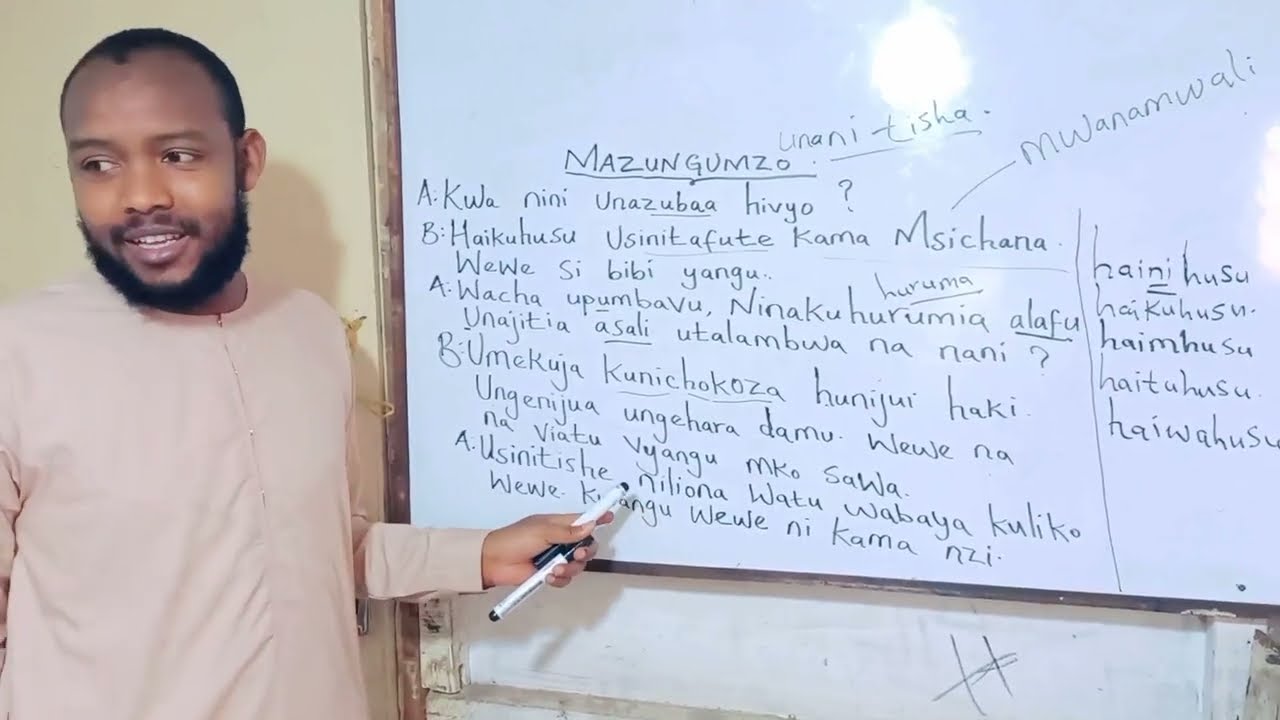 unani tisha.
mwanamwali
MAZUNGUMZO.
A: Kwa nini Unazubaa hivyo ?
B: Haikuhusu Usinitafute Kama Msichana.
Wewe si bibi yangu..
huruma
A: Wacha upumbavu, Ninakuhurumia alafu
Unajitia asali utalambwa na nani ?
B: Umekuja Kunichokoza hunijui haki.
Ungenijua ungehara damu. Wewe na
na Viatu Vyangu mko sawa.
A: Usinitishe niliona Watu Wabaya Kuliko
Wewe. Kwangu Wewe ni Kama nzi.
hainihusu
haikuhusu.
haimhusu
haituhusu.
haiwahusu